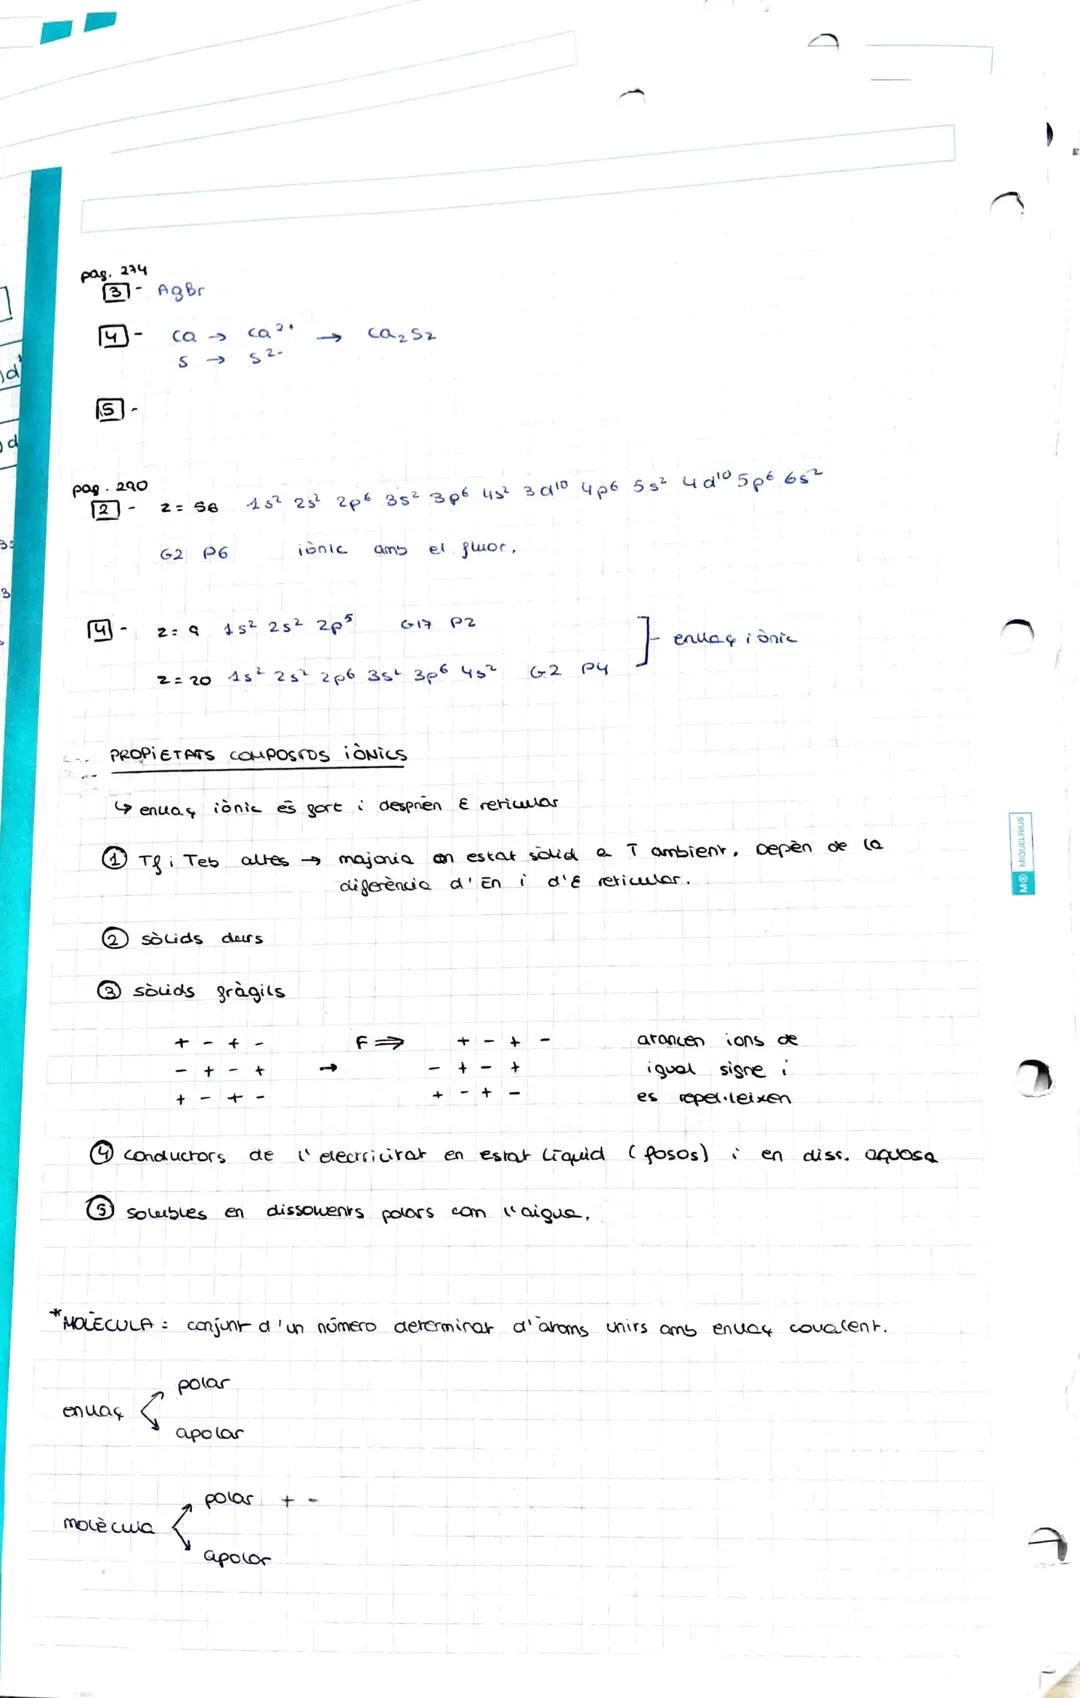 pag. 274
3 - AgBr
4 - Ca → Ca²⁺ → Ca₂S₂
S → S²⁻
5 -
pag. 290
2 - Z = 56 1s² 2s² 2p⁶ 3s² 3p⁶ 4s² 3d¹⁰ 4p⁶ 5s² 4d¹⁰ 5p⁶ 6s²
G2 P6 iònic amb el fluor.
4 - Z = 9 1s² 2s² 2p⁵ G17 P2
enllaç iònic
Z = 20 1s² 2s² 2p⁶ 3s² 3p⁶ 4s² G2 P4
PROPIETATS COMPOSTOS IÒNICS
↳ enllaç iònic és fort i desprèn E reticular
① Tf i Teb altes → majoria en estat sòlid a T ambient. Depèn de la
diferència d'En i d'E reticular.
② sòlids durs
③ sòlids fràgils
+ - + - F ⇒ + - + - atancen ions de
- + - + → - + - + igual signe i
+ - + - + - + - es repel·leixen
④ conductors de l'electricitat en estat líquid (fosos) i en diss. aquosa
⑤ solubles en dissolvents polars com l'aigua.
*MOLÈCULA: conjunt d'un número determinat d'àtoms units amb enllaç covalent.
polar
enllaç
apolar
polar + -
molècula
apolar
M® MIQUELRIUS